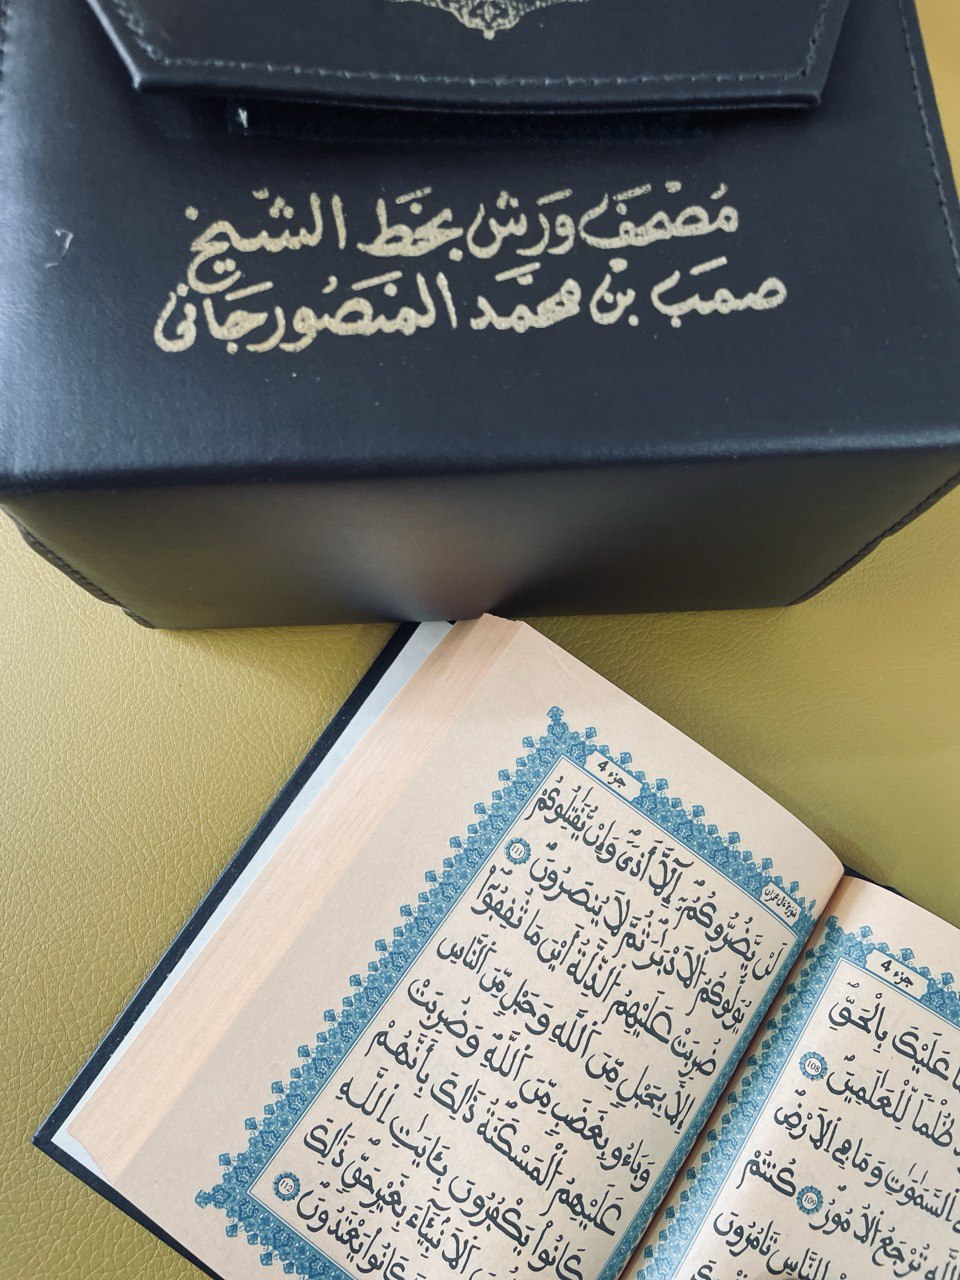 مُصْحَف وَرْش بِخَطِّ الشَّيْخ
صمب بن محمَّد المنصورجاني
جزء 4
سورة ءال عمران
لَنْ يَّضُرُّوكُمُۥٓ إِلَّآ أَذىً وَإِنْ يُّقَٰتِلُوكُمْ
يُوَلُّوكُمُ الَادْبَٰرَ ثُمَّ لَا يُنصَرُونَ 111
ضُرِبَتْ عَلَيْهِمُ الذِّلَّةُ أَيْنَ مَا ثُقِفُوٓاْ
إِلَّا بِحَبْلٍ مِّنَ اَللَّهِ وَحَبْلٍ مِّنَ اَلنَّاسِ
وَبَآءُو بِغَضَبٍ مِّنَ اَللَّهِ وَضُرِبَتْ
عَلَيْهِمُ الْمَسْكَنَةُ ذَٰلِكَ بِأَنَّهُمْ
كَانُواْ يَكْفُرُونَ بِـَٔايَٰتِ اِللَّهِ
الَانۢبِئَآءَ بِغَيْرِ حَقٍّ ذَٰلِكَ
كَانُواْ يَعْتَدُونَ 112
جزء 4
عَلَيْكَ بِالْحَقِّ
ظُلْماً لِّلْعَٰلَمِينَ 108
السَّمَٰوَٰتِ وَمَا فِي اِلَارْضِ
تُرْجَعُ الُامُورُ 109 كُنتُمْ
لِلنَّاسِ تَامُرُونَ